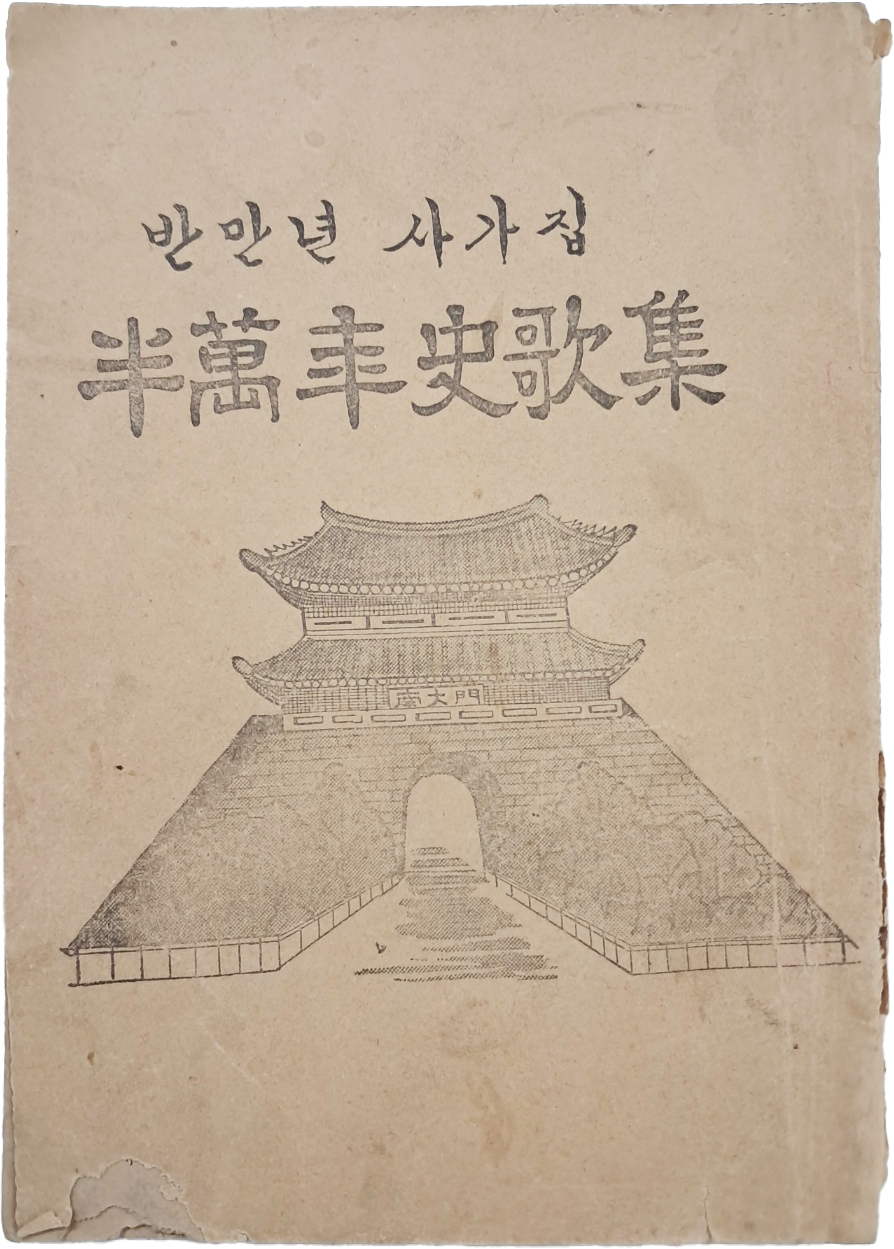 반만년 사가집
半萬年史歌集
南大門